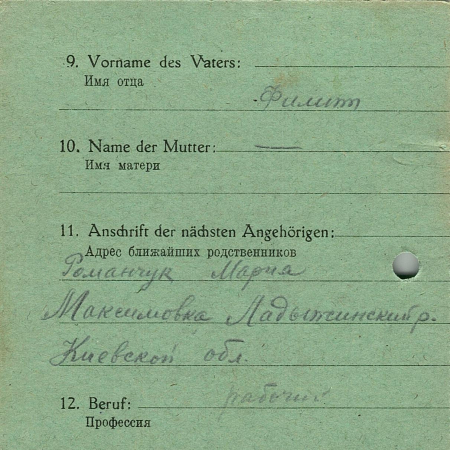 9. Vorname des Vaters:
Имя отца
Филип
10. Name der Mutter: —
Имя матери
11. Anschrift der nächsten Angehörigen:
Адрес ближайших родственников
Романчук Мария
Максимовка Ладыжинский р.
Киевской обл.
12. Beruf: рабочий
Профессия